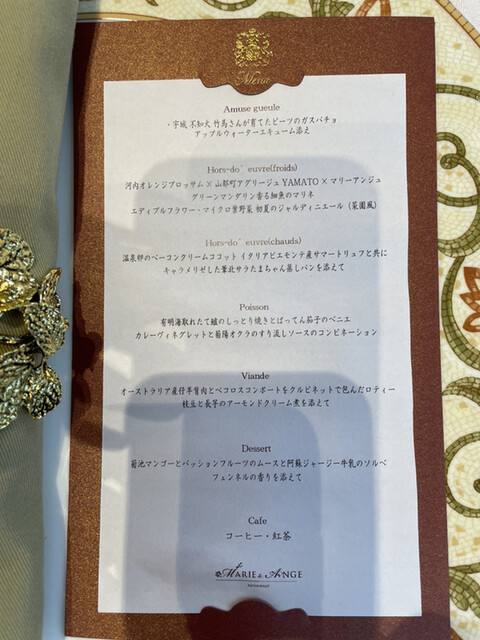 Menu
Amuse gueule
・宇城 不知火 竹馬さんが育てたビーツのガスパチョ
アップルウォーターエキューム添え
Hors-do´euvre(froids)
河内オレンジブロッサム×山都町アグリージュYAMATO×マリーアンジュ
グリーンマンダリン香る細魚のマリネ
エディブルフラワー・マイクロ葉野菜 初夏のジャルディニエール(菜園風)
Hors-do´euvre(chauds)
温泉卵のベーコンクリームココット イタリアピエモンテ産サマートリュフと共に
キャラメリゼした葦北サラたまちゃん蒸しパンを添えて
Poisson
有明海取れたて鱸のしっとり焼きとばってん茄子のベニエ
カレーヴィネグレットと菊陽オクラのすり流しソースのコンビネーション
Viande
オーストラリア産仔羊背肉とペコロスコンポートをクルピネットで包んだロティー
枝豆と長芋のアーモンドクリーム煮を添えて
Dessert
菊池マンゴーとパッションフルーツのムースと阿蘇ジャージー牛乳のソルベ
フェンネルの香りを添えて
Cafe
コーヒー・紅茶
MARIE & ANGE